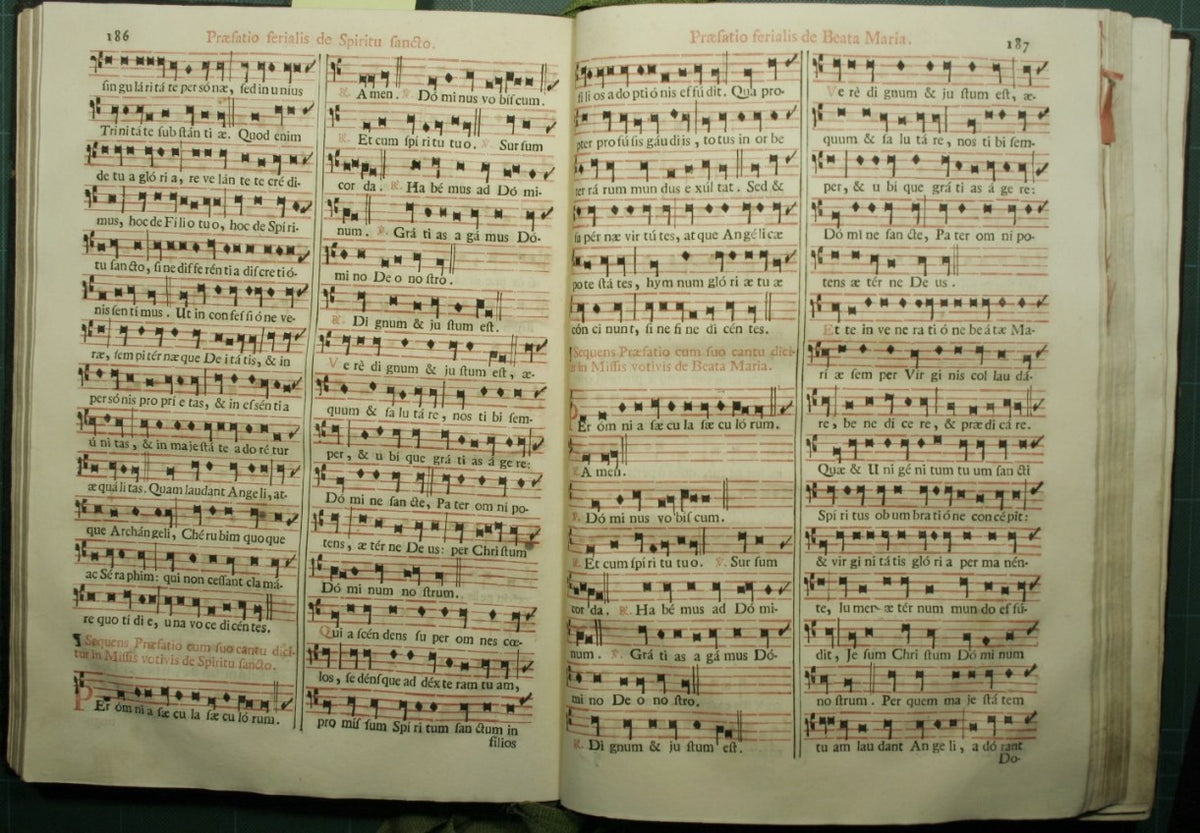 186
Præfatio ferialis de Spiritu sancto.
singuláritáte persónæ, sed in unius
Trinitáte substántiæ. Quod enim
de tua glória, revelánte te crédi-
mus, hoc de Filio tuo, hoc de Spíri-
tu sancto, sine differéntia discretió-
nis sentimus. Ut in confessióne ve-
ræ, sempitérnæque Deitátis, & in
persónis proprietas, & in esséntia
únitas, & in majestáte adorétur
æquálitas. Quam laudant Angeli, at-
que Archángeli, Chérubim quoque
ac Séraphim: qui non cessant clamá-
re quotídie, una voce dicéntes.
¶ Sequens Præfatio cum suo cantu dici-
tur in Missis votivis de Spiritu sancto.
PEr ómnia sæcula sæculórum.
℟. Amen. ℣. Dóminus vobiscum.
℟. Et cum spíritu tuo. ℣. Sursum
corda. ℟. Habémus ad Dómi-
num. ℣. Grátias agámus Dó-
mino Deo nostro.
℟. Dignum & justum est.
Verè dignum & justum est, æ-
quum & salutáre, nos tibi sem-
per, & ubique grátias ágere:
Dómine sancte, Pater omnipo-
tens, ætérne Deus: per Christum
Dóminum nostrum.
Qui ascéndens super omnes cœ-
los, sedénsque ad déxteram tuam,
promissum Spiritum sanctum in
filios
Præfatio ferialis de Beata Maria.
187
filios adoptiónis effúdit. Qua pro-
pter profúsis gáudiis, totus in orbe
terrárum mundus exúltat. Sed &
supérnæ virtútes, atque Angélicæ
potestátes, hymnum glóriæ tuæ
cóncinunt, sine fine dicéntes.
¶ Sequens Præfatio cum suo cantu dici-
tur in Missis votivis de Beata Maria.
PEr ómnia sæcula sæculórum.
℟. Amen.
℣. Dóminus vobiscum.
℟. Et cum spíritu tuo. ℣. Sursum
corda. ℟. Habémus ad Dómi-
num. ℣. Grátias agámus Dó-
mino Deo nostro.
℟. Dignum & justum est.
Verè dignum & justum est, æ-
quum & salutáre, nos tibi sem-
per, & ubique grátias ágere:
Dómine sancte, Pater omnipo-
tens ætérne Deus.
Et te in veneratióne beátæ Ma-
riæ semper Virginis collaudá-
re, benedicere, & prædicáre.
Quæ & Unigénitum tuum sancti
Spiritus obumbratióne concépit:
& virginitátis glória permanén-
te, lumen ætérnum mundo effú-
dit, Jesum Christum Dóminum
nostrum. Per quem majestátem
tuam laudant Angeli, adórant
Do-